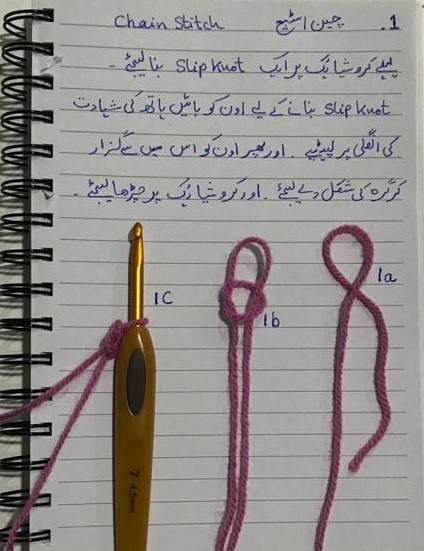 1. چین اسٹیچ Chain Stitch
پہلے کروشیا ہُک پر ایک Slip Knot بنا لیجئے۔
Slip Knot بنانے کے لیے اون کو بائیں ہاتھ کی شہادت
کی انگلی پر لپیٹیے۔ اور پھر اون کو اس میں سے گزار
کر گرہ کی شکل دے لیجئے۔ اور کروشیا ہُک پر چڑھا لیجئے۔
1a
1b
1C
7 4.5mm